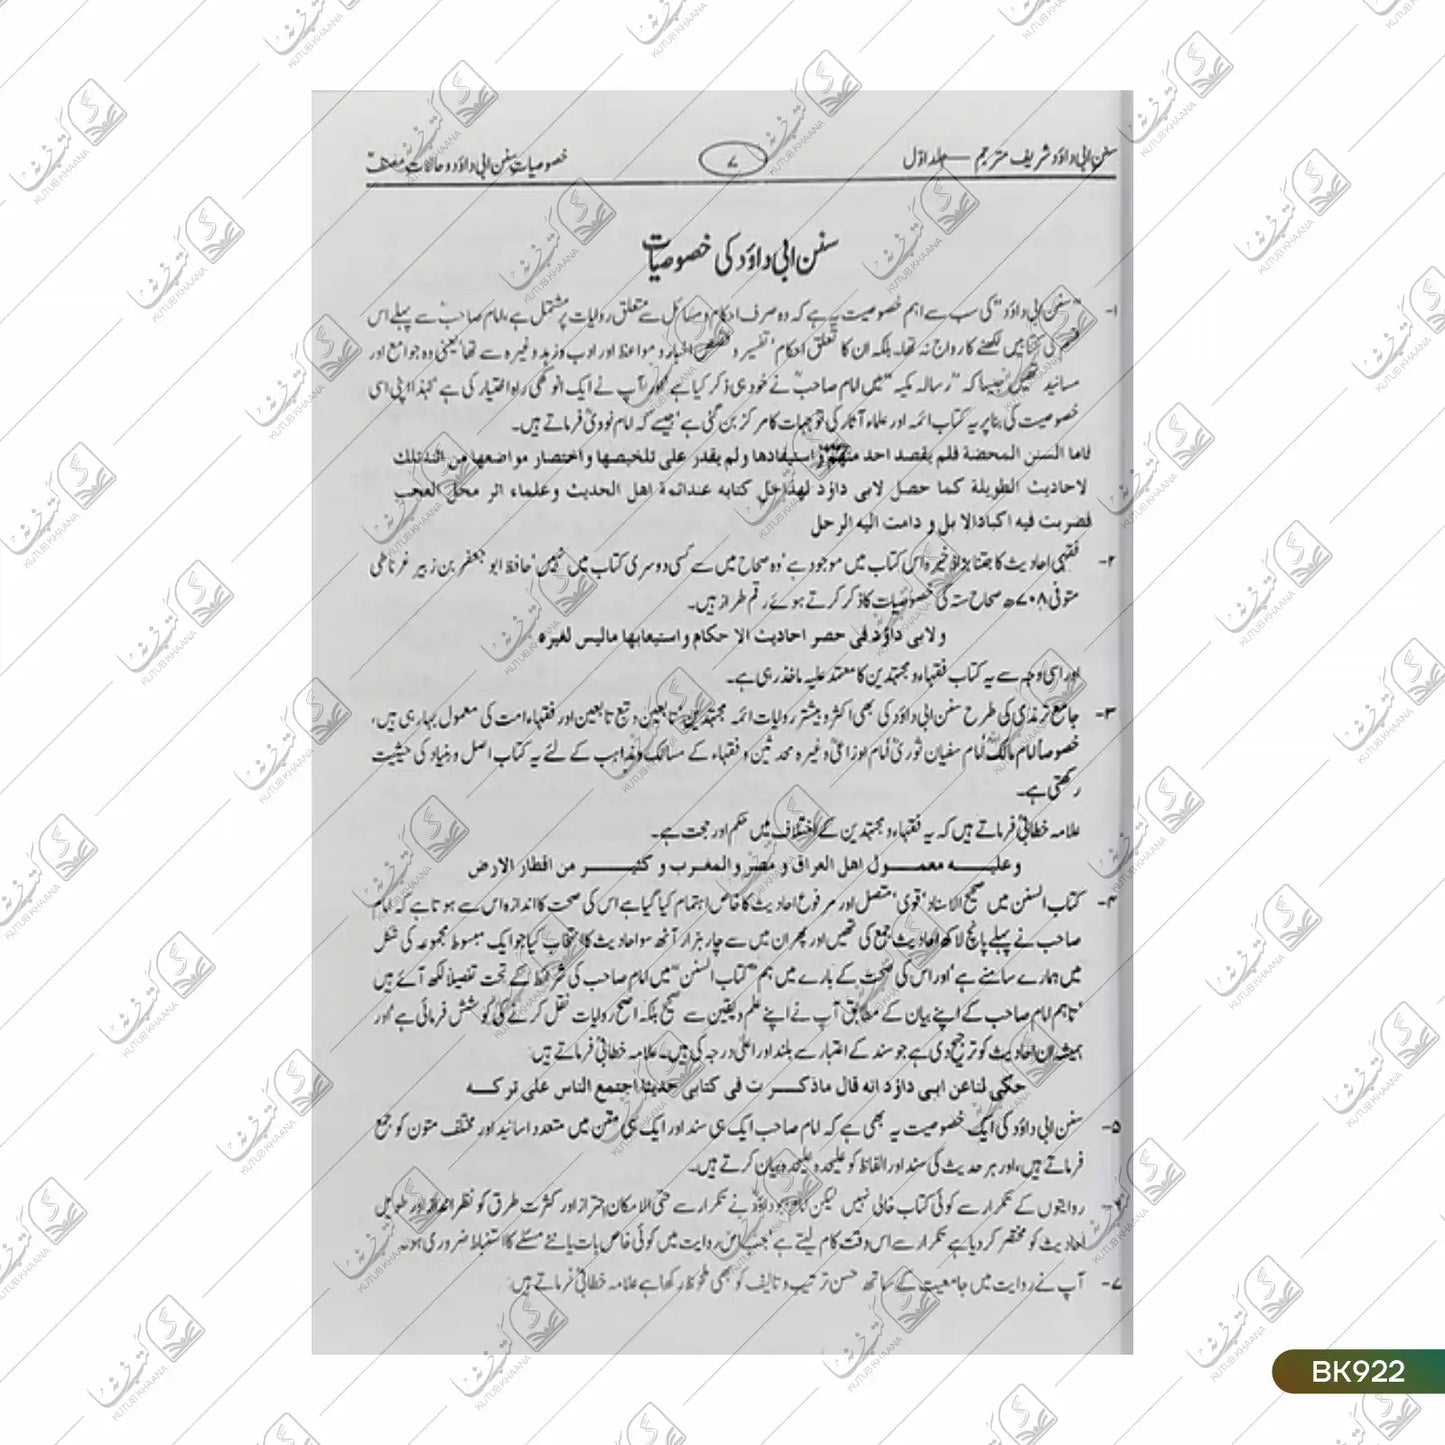 سنن ابی داؤد شریف مترجم — جلد اوّل
۷
خصوصیاتِ سنن ابی داؤد و حالاتِ مصنف
سنن ابی داؤد کی خصوصیات
۱- ”سنن ابی داؤد“ کی سب سے اہم خصوصیت یہ ہے کہ وہ صرف احکام و مسائل سے متعلق روایات پر مشتمل ہے، امام صاحبؒ سے پہلے اس
قسم کی کتابیں لکھنے کا رواج نہ تھا۔ بلکہ ان کا تعلق احکام‘ تفسیر و قصص‘ اخبار و مواعظ اور ادب و زہد وغیرہ سے تھا‘ یعنی وہ جوامع اور
مسانید تھیں‘ جیسا کہ ”رسالہ مکیہ“ میں امام صاحبؒ نے خود ہی ذکر کیا ہے اور آپ نے ایک انوکھی راہ اختیار کی ہے‘ لہٰذا اپنی اسی
خصوصیت کی بنا پر یہ کتاب ائمہ اور علماء آثار کی توجہات کا مرکز بن گئی ہے‘ جیسے کہ امام نوویؒ فرماتے ہیں۔
فاما السنن المحضة فلم يقصد احد منهم و استيفادها ولم يقدر على تلخيصها واختصار مواضعها من
لاحاديث الطويلة كما حصل لابى داؤد لهذا حل كتابه عند ائمة اهل الحديث وعلماء اثر محل العجب
فضربت فيه اكباد الابل و دامت اليه الرحل
۲- فقہی احادیث کا جتنا بڑا ذخیرہ اس کتاب میں موجود ہے‘ وہ صحاح میں سے کسی دوسری کتاب میں نہیں‘ حافظ ابو جعفر بن زبیر غرناطی
متوفی ۷۰۸ھ صحاح ستہ کی خصوصیات کا ذکر کرتے ہوئے رقم طراز ہیں۔
ولابى داؤد فى حصر احاديث الا حكام واستيعابها ماليس لغيره
اور اسی وجہ سے یہ کتاب فقہاء و مجتہدین کا معتمد علیہ ماخذ رہی ہے۔
۳- جامع ترمذی کی طرح سنن ابی داؤد کی بھی اکثر و بیشتر روایات ائمہ مجتہدین‘ تابعین و تبع تابعین اور فقہاء امت کی معمول بہا رہی ہیں،
خصوصاً امام مالکؒ‘ امام سفیان ثوریؒ‘ امام اوزاعیؒ وغیرہ محدثین و فقہاء کے مسالک و مذاہب کے لئے یہ کتاب اصل و بنیاد کی حیثیت
رکھتی ہے۔
علامہ خطابیؒ فرماتے ہیں کہ یہ فقہاء و مجتہدین کے اختلاف میں حکم اور حجت ہے۔
وعليه معمول اهل العراق و مصر والمغرب و كثير من اقطار الارض
۴- کتاب السنن میں صحیح الاسناد‘ قوی‘ متصل اور مرفوع احادیث کا خاص اہتمام کیا گیا ہے اس کی صحت کا اندازہ اس سے ہوتا ہے کہ امام
صاحب نے پہلے پانچ لاکھ احادیث جمع کی تھیں اور پھر ان میں سے چار ہزار آٹھ سو احادیث کا انتخاب کیا جو ایک مبسوط مجموعہ کی شکل
میں ہمارے سامنے ہے‘ اور اس کی صحت کے بارے میں ہم ”کتاب السنن“ میں امام صاحب کی شرائط کے تحت تفصیلاً لکھ آئے ہیں
‘تاہم امام صاحب کے اپنے بیان کے مطابق آپ نے اپنے علم و یقین سے صحیح بلکہ اصح روایات نقل کرنے کی کوشش فرمائی ہے‘ اور
ہمیشہ ان احادیث کو ترجیح دی ہے جو سند کے اعتبار سے بلند اور اعلیٰ درجہ کی ہیں۔ علامہ خطابیؒ فرماتے ہیں:
حكى لنا عن ابى داؤد انه قال ماذكرت فى كتابى حديثا اجتمع الناس على تركه
۵- سنن ابی داؤد کی ایک خصوصیت یہ بھی ہے کہ امام صاحب ایک ہی سند اور ایک ہی متن میں متعدد اسانید اور مختلف متون کو جمع
فرماتے ہیں، اور ہر حدیث کی سند اور الفاظ کو علیحدہ علیحدہ بیان کرتے ہیں۔
۶- روایتوں کے تکرار سے کوئی کتاب خالی نہیں لیکن امام ابوداؤدؒ نے تکرار سے حتی الامکان احتراز اور کثرت طرق کو نظر انداز اور طویل
احادیث کو مختصر کر دیا ہے تکرار سے اس وقت کام لیتے ہے‘ جب اس روایت میں کوئی خاص بات یا نئے مسئلے کا استنباط ضروری ہو۔
۷- آپ نے روایت میں جامعیت کے ساتھ حسن ترتیب و تالیف کو بھی ملحوظ رکھا ہے علامہ خطابیؒ فرماتے ہیں:
کتب خانہ
KUTUB KHAANA
BK922